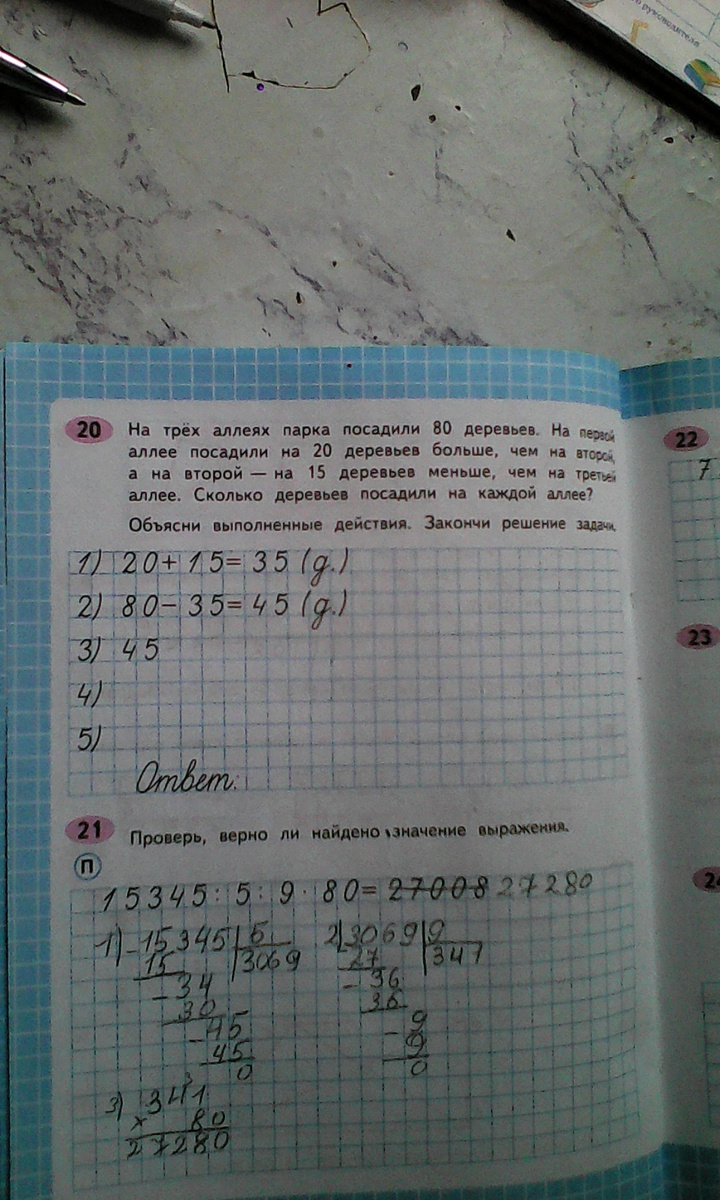 го руководителя
20
На трёх аллеях парка посадили 80 деревьев. На первой
аллее посадили на 20 деревьев больше, чем на второй,
а на второй — на 15 деревьев меньше, чем на третьей
аллее. Сколько деревьев посадили на каждой аллее?
Объясни выполненные действия. Закончи решение задачи.
1) 20 + 15 = 35 (д.)
2) 80 − 35 = 45 (д.)
3) 45
4)
5)
Ответ:
21
Проверь, верно ли найдено значение выражения.
П
15345 : 5 : 9 · 80 = 27008 27280
1) 15345 | 5 2) 3069 | 9
15 | 3069 27 | 341
− 34 − 36
30 36
− 45 − 9
45 9
0 0
3
3) 341
× 80
27280
22
7
23
24